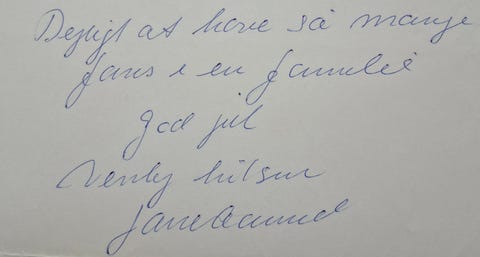 Dejligt at have så mange
fans i en familie
god jul
Venlig hilsen